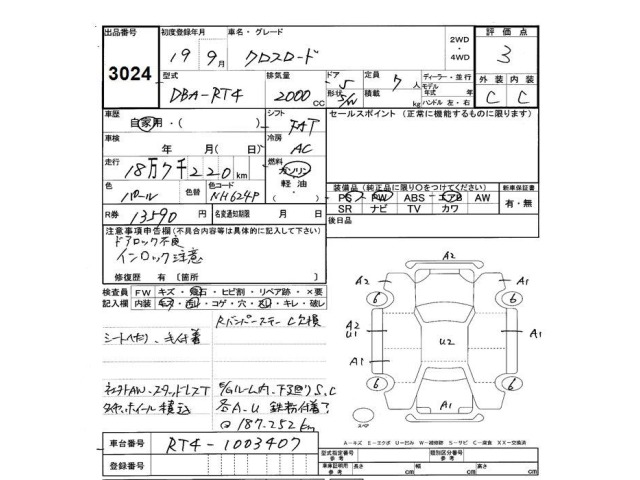 出品番号 初度登録年月 車名・グレード 2WD・4WD 評価点
3024 19年 9月 クロスロード 3
型式 排気量 ドア 形状 定員 積載 ディーラー・並行 外装 内装
DBA-RT4 2000 CC 5 S/W 7人 kg モデル年式 年 ハンドル 左・右 C C
車歴 自家用・( ) シフト FAT セールスポイント (正常に機能するものに限ります)
車検 年 月 日( ) 冷房 AC
走行 18万7千220km 燃料 ガソリン 軽油・( )
色 パール 色替 色コード NH624P
装備品(純正品に限り○をつけてください) 新車保証書
PS PW ABS エアB AW 有・無
SR ナビ TV カワ
R券 13590円 名変通知期限 月 日 後日品
注意事項申告欄(不具合内容等は具体的に記入して下さい)
ドアロック不良
インロック注意
修復歴 有 [箇所 ]
検査員記入欄 FW キズ・飛石・ヒビ割・リペア跡・×要
内装 キズ・汚レ・コゲ・穴・スレ・キレ・破レ
Rバンパーステー C欠損
シートヘタリ、毛付着
タイヤ、ホイール積込
@187.252km
車台番号 RT4-1003407
登録番号
A2
A2 A1
6 6
A2
U1 U2 A1
A1
6 6
A1
スペア
A-キズ E-エクボ U-凹み W-補修跡 S-サビ C-腐食 XX-交換済
型式指定番号 参考 類別区分番号 参考
車庫証明用 参考 長さ cm 幅 cm 高さ cm